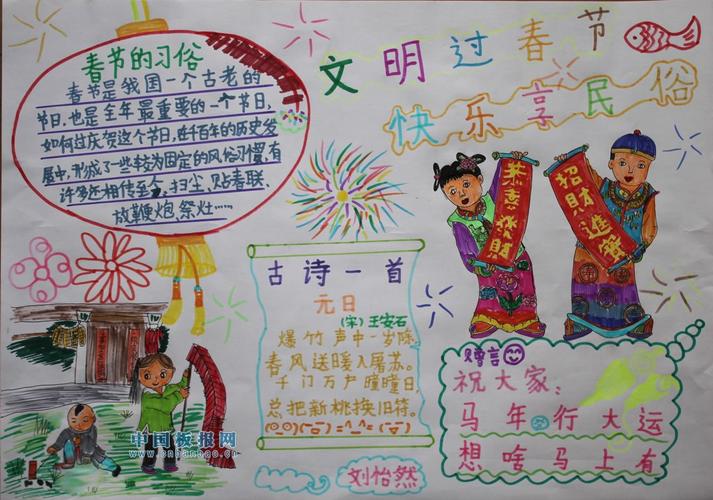 文明过春节
快乐享民俗
春节的习俗
春节是我国一个古老的
节日,也是全年最重要的一个节日,
如何过庆贺这个节日,在千百年的历史发
展中,形成了一些较为固定的风俗习惯,有
许多还相传至今,扫尘、贴春联、
放鞭炮、祭灶……
恭喜發財
招財進寶
古诗一首
元日
(宋)王安石
爆竹声中一岁除
春风送暖入屠苏。
千门万户曈曈日
总把新桃换旧符。
赠言
祝大家:
马年行大运
想啥马上有
刘怡然
中国板报网
www.cnbanbao.cn